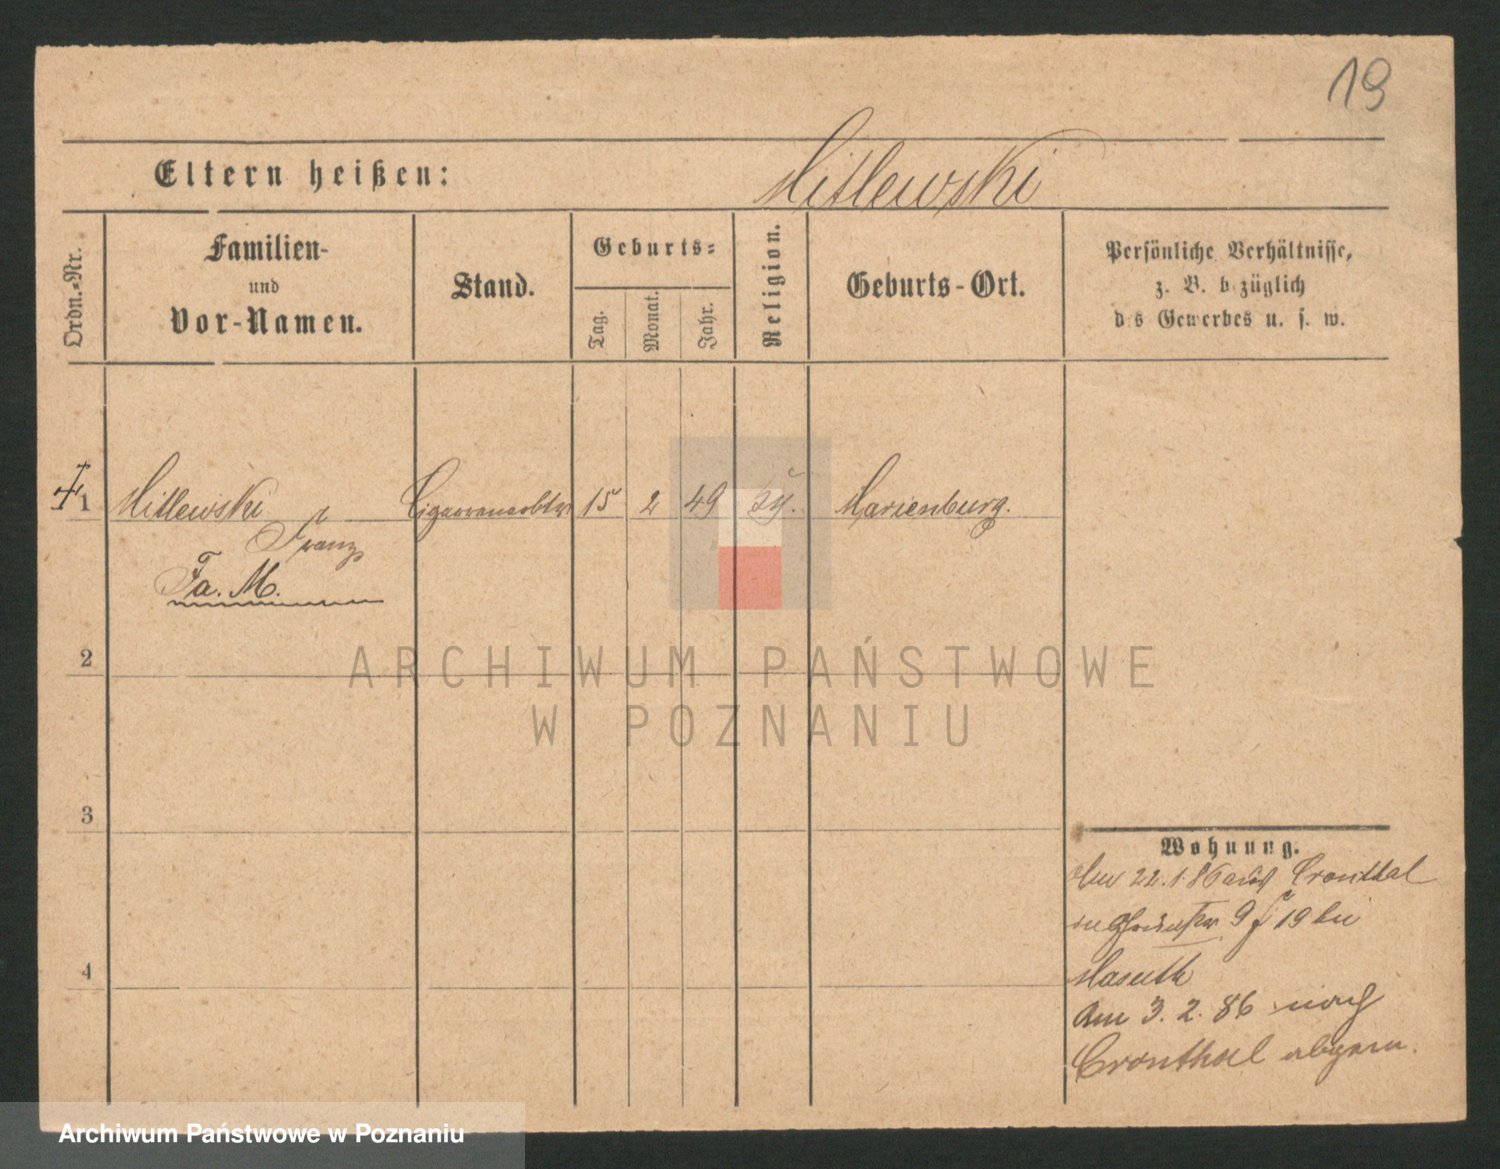 19
Eltern heißen: Mitlewski
Ordn.-Nr.
Familien-
und
Vor-Namen.
Stand.
Geburts-
Tag.
Monat.
Jahr.
Religion.
Geburts-Ort.
Persönliche Verhältnisse,
z. B. bezüglich
des Gewerbes u. s. w.
1 Mitlewski Cigarrenarbtr 15 2 49 Marienburg.
Franz
Fa. M.
2
3
4
Wohnung.
22.1.86 Cronthal
9 19 bei
Masuth
Am 3. 2. 86 nach
Cronthal abgem.
ARCHIWUM PAŃSTWOWE
W POZNANIU
Archiwum Państwowe w Poznaniu